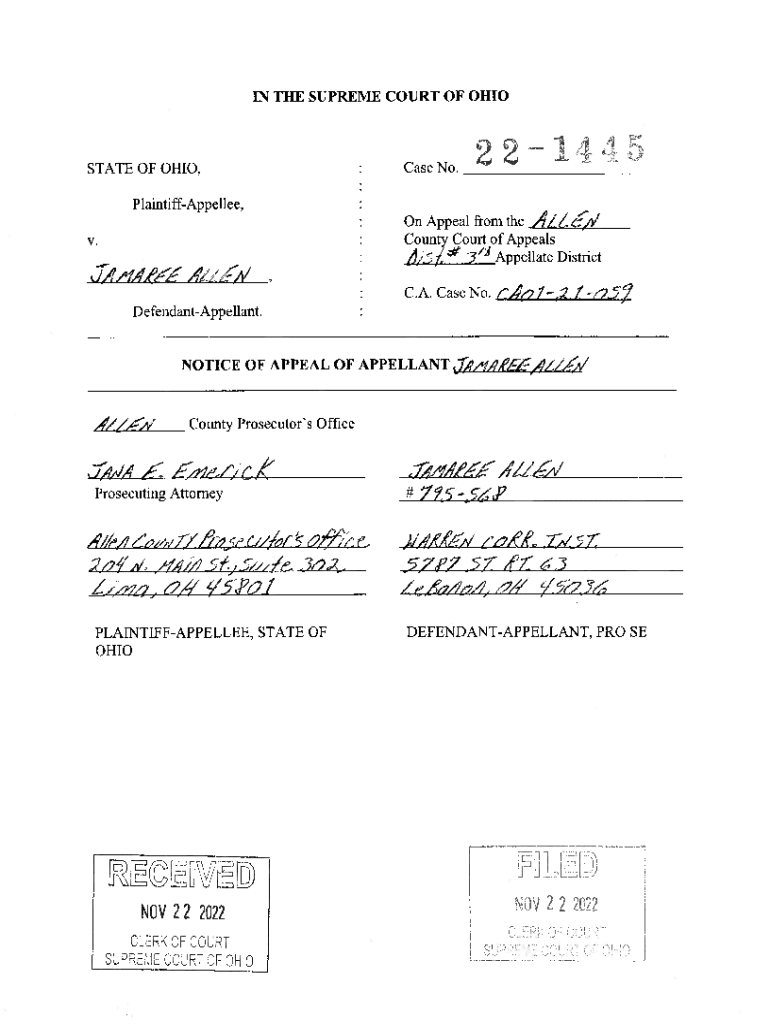 IN THE SUPREME COURT OF OHIO
STATE OF OHIO, : Case No. 22-1445
:
Plaintiff-Appellee, :
: On Appeal from the ALLEN
v. : County Court of Appeals
: Dist.# 3rd Appellate District
JAMAREE ALLEN, :
: C.A. Case No. CA01-21-059
Defendant-Appellant. :
NOTICE OF APPEAL OF APPELLANT JAMAREE ALLEN
ALLEN County Prosecutor's Office
JANA E. EmericK JAMAREE ALLEN
Prosecuting Attorney # 795-568
Allen CounTY Prosecutor's Office WARREN CORR. INST.
204 N. MAIN St., Suite 302 5787 ST. RT. 63
Lima, OH 45801 LeBanon, OH 45036
PLAINTIFF-APPELLEE, STATE OF DEFENDANT-APPELLANT, PRO SE
OHIO
RECEIVED FILED
NOV 22 2022 NOV 22 2022
CLERK OF COURT CLERK OF COURT
SUPREME COURT OF OHIO SUPREME COURT OF OHIO